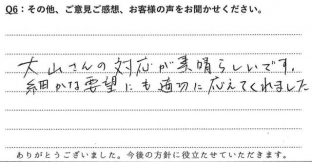 Q6：その他、ご意見ご感想、お客様の声をお聞かせください。
大山さんの対応が素晴らしいです。
細かな要望にも適切に応えてくれました
ありがとうございました。今後の方針に役立たせていただきます。